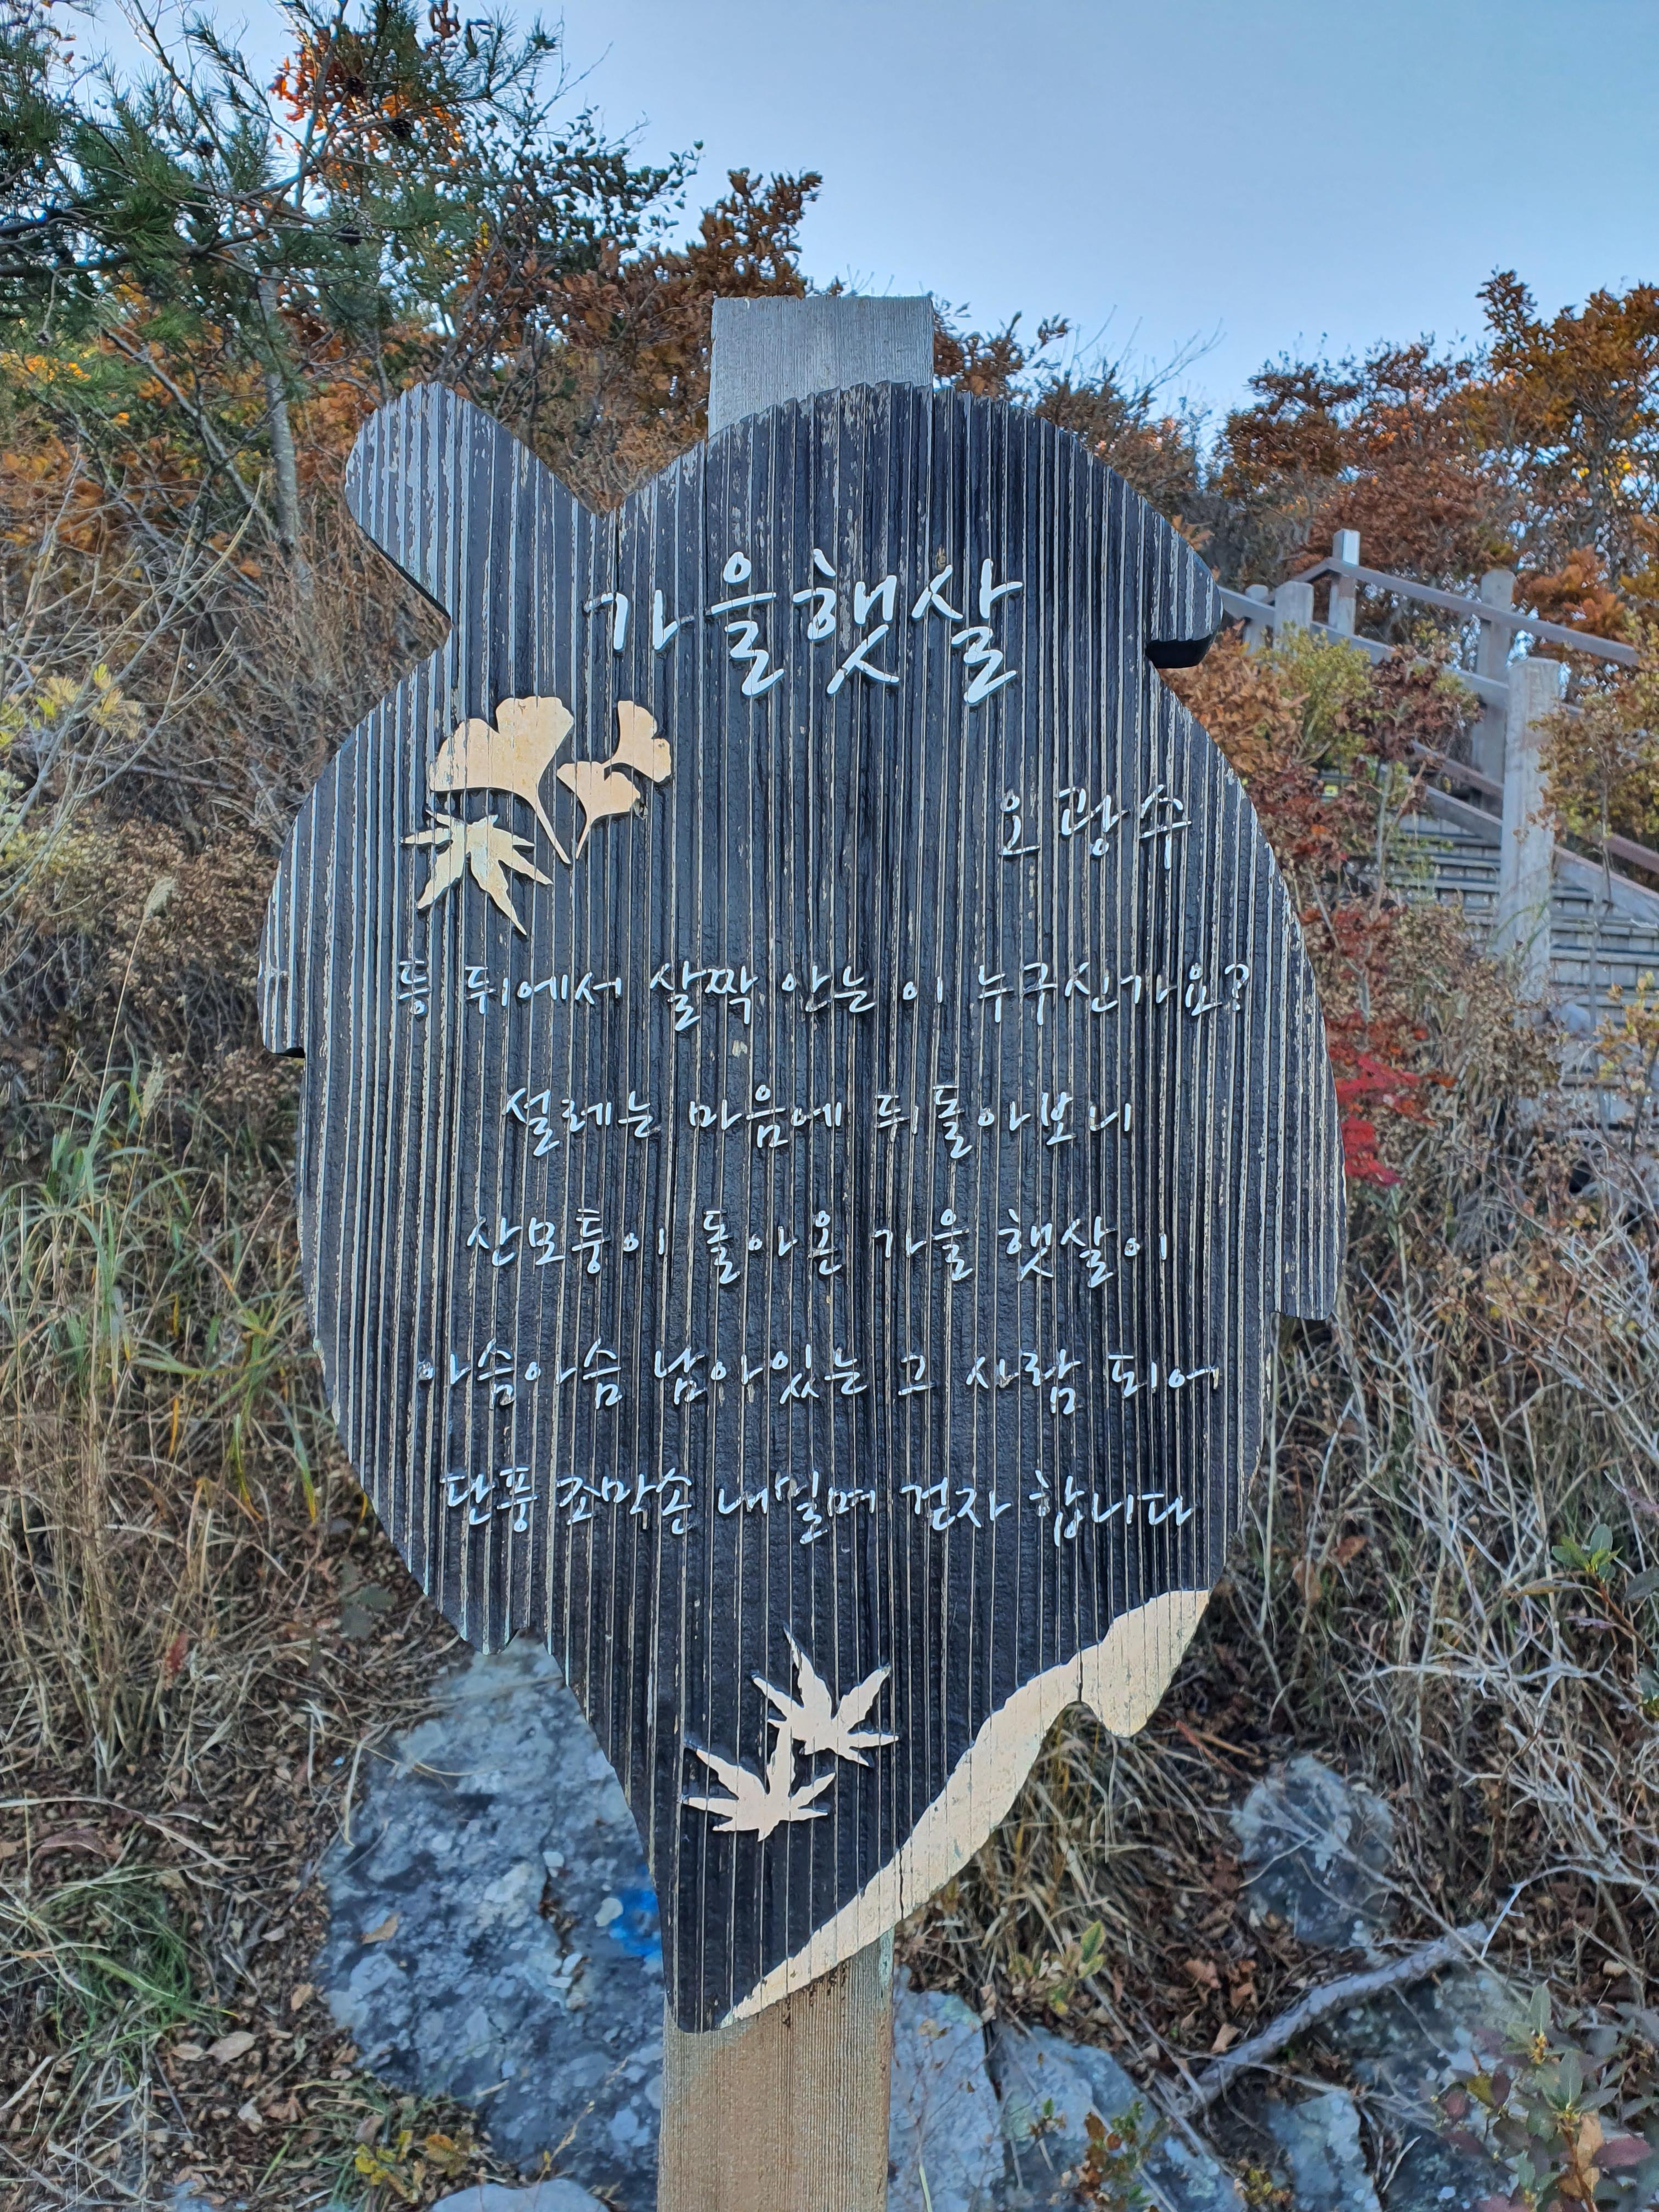 가을햇살
오광수
등 뒤에서 살짝 안는 이 누구신가요?
설레는 마음에 뒤돌아보니
산모퉁이 돌아온 가을 햇살이
아슴아슴 남아있는 그 사람 되어
단풍 조막손 내밀며 걷자 합니다